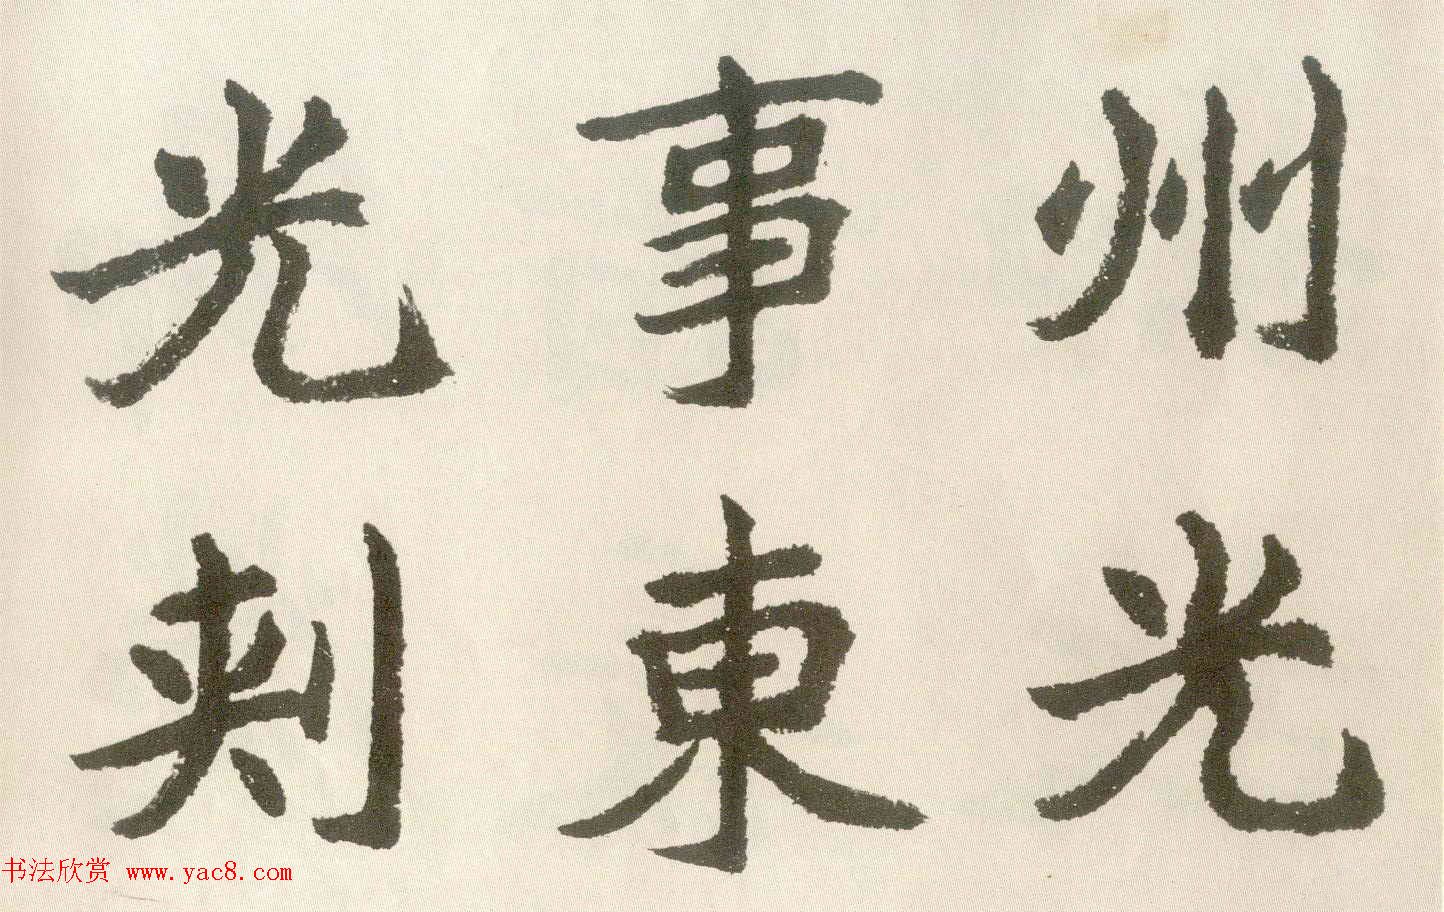 州光
事東
光刺
书法欣赏 www.yac8.com